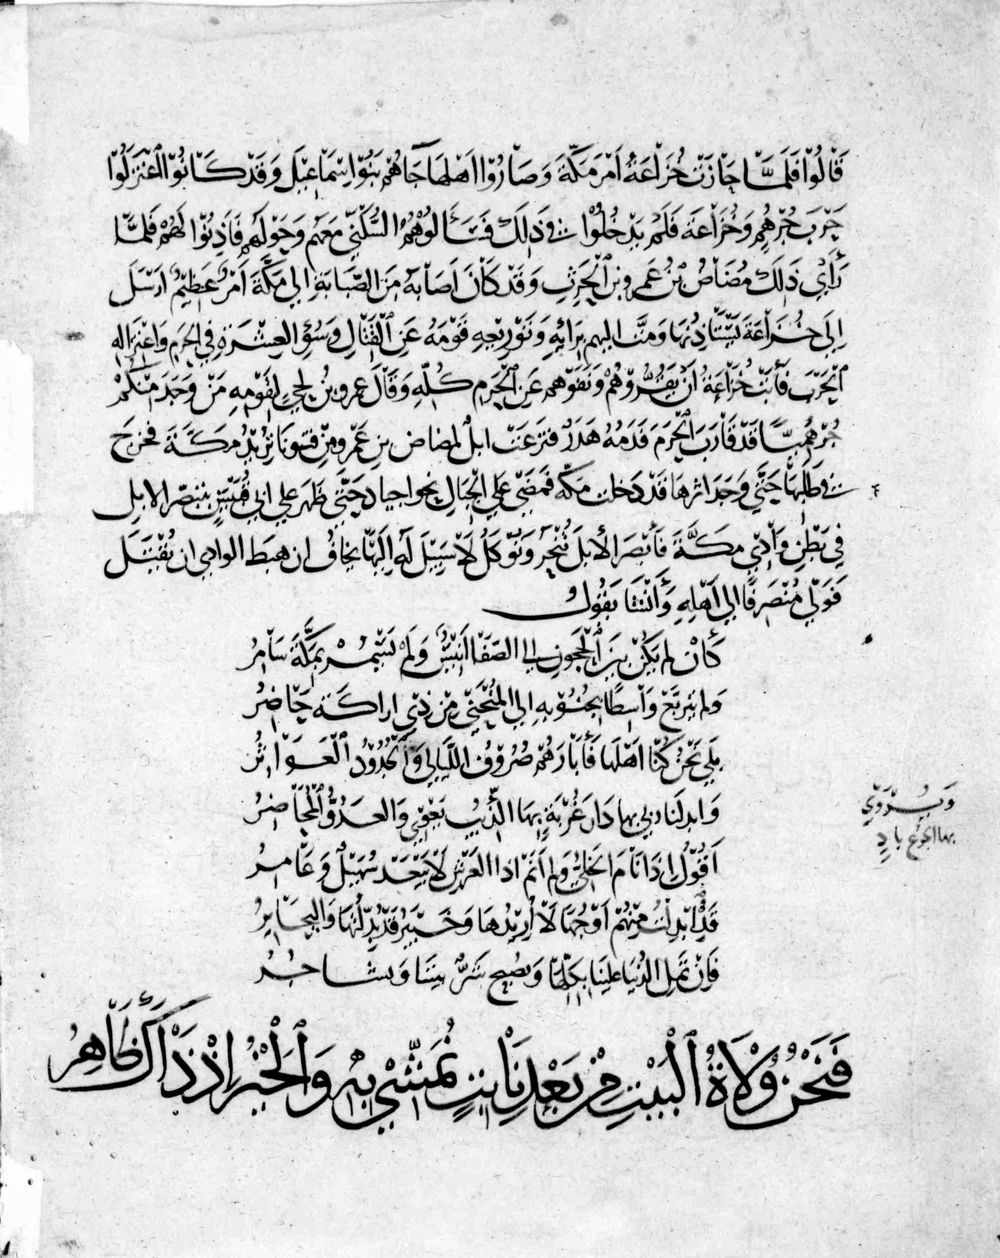 قَالُوْا فَلَمَّا حَازَتْ خُزَاعَةُ اَمْرَ مَكَّةَ وَصَارُوْا اَهْلَهَا جَاهُمْ بَنُوْا اِسْمَاعِيْلَ وَقَدْ كَانُوْا اعْتَزَلُوْا
حَرْبَ جُرْهُمٍ وَخُزَاعَةَ فَلَمْ يَدْخُلُوْا فِي ذَلِكَ فَسَأَلُوْهُمُ السُّكْنَى مَعَهُمْ وَحَوْلَهُمْ فَاَذِنُوْا لَهُمْ فَلَمَّا
رَأَى ذَلِكَ مُضَاضُ بْنُ عَمْرِو بْنِ الْحَرِثِ وَقَدْ كَانَ اَصَابَهُ مِنَ الصَّبَابَةِ اِلَى مَكَّةَ اَمْرٌ عَظِيْمٌ اَرْسَلَ
اِلَى خُزَاعَةَ يَسْتَأْذِنُهَا وَمَتَّ اليهم بِرَأْيِهِ وَتَوْرِيْعِهِ قَوْمَهُ عَنِ الْقِتَالِ وَسُوْءِ الْعِشْرَةِ فِي الْحَرَمِ وَاعْتِزَالِهِ
الْحَرْبَ فَأَبَتْ خُزَاعَةُ اَنْ يُقِرُّوْهُمْ وَنَفَوْهُمْ عَنِ الْحَرَمِ كُلِّهِ وَقَالَ عَمْرُو بْنُ لُحَيٍّ لِقَوْمِهِ مَنْ وَجَدَ مِنْكُمْ
جُرْهُمِيًّا قَدْ قَارَبَ الْحَرَمَ فَدَمُهُ هَدَرٌ فَنَزَعَتْ اِبِلٌ لِمُضَاضِ بْنِ عَمْرٍو مِنْ قَنَوْنَا تُرِيْدُ مَكَّةَ فَخَرَجَ
فِي طَلَبِهَا حَتَّى وَجَدَ اثرها قَدْ دَخَلَتْ مَكَّةَ فَمَضَى عَلَى الْجِبَالِ نحو اجياد حَتَّى ظَهَرَ عَلَى اَبِي قُبَيْسٍ يَتَبَصَّرُ الابل
فِي بَطْنِ وَادِي مَكَّةَ فَأَبْصَرَ الْأبِلَ تُنْحَرُ وَتُؤْكَلُ لَا سَبِيْلَ لَهُ اِلَيْهَا يَخَافُ ان هبط الوادي ان يُقْتَلَ
فَوَلَّى مُنْصَرِفًا الى اَهْلِهِ وَأَنْشَأَ يَقُولُ
كَأَنْ لَمْ يَكُنْ بَيْنَ الْحَجُونِ اِلَى الصَّفَا اَنِيْسٌ وَلَمْ يَسْمُرْ بِمَكَّةَ سَامِرُ
وَلَمْ يَتَرَبَّعْ وَاسِطًا بِجَنُوْبِهِ اِلَى الْمُنْحَنَى مِنْ ذِي اراكَةَ حَاضِرُ
بَلَى نَحْنُ كُنَّا اَهْلَهَا فَأَبَادَهُمْ صُرُوْفُ اللَّيَالِي وَالْجُدُوْدُ الْعَوَاثِرُ
وَابدلنا ربي بها دَارَ غُرْبَةٍ بِهَا الذِّيْبُ يَعْوِي وَالعَدُوُّ الْمُحَاصِرُ
وَيُرْوَي
بها الجوع بادٍ
اَقُوْلُ اِذَا نَامَ الْخَلِيُّ وَلَمْ اَنَمْ اذا العَرْشِ لَا يَبْعَدْ سُهَيْلٌ وَعَامِرُ
قَدْ اُبْدِلْتُ مِنْهُمْ اَوْجُهًا لَا اُرِيْدُهَا وَحِمْيَرُ قَدْ بُدِّلْتُهَا وَالْيُحَابِرُ
فَاِنْ تَمِلِ الدُّنْيَا عَلَيْنَا بِكَلِّهَا وَيُصْبِحْ شَرٌّ بيننا وَتَشَاجُرُ
فَنَحْنُ وُلَاةُ الْبَيْتِ مِنْ بَعْدِ نَابِتٍ نُمَشِّي بِهِ وَالْخَيْرُ اِذْ ذَاكَ ظَاهِرُ